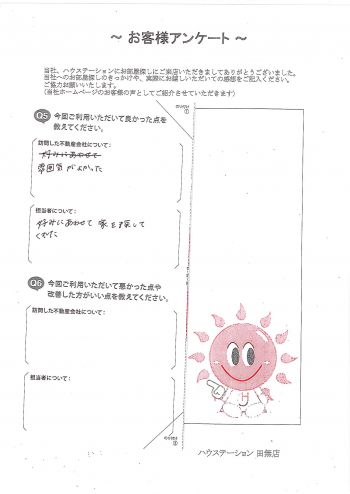 ～ お客様アンケート ～
当社、ハウステーションにお部屋探しにご来店いただきましてありがとうございました。
当社へのお部屋探しのきっかけや、実際にお越しいただいての感想をご記入ください。
ご協力お願いいたします。
(当社ホームページのお客様の声としてご紹介させていただきます)
Q5 今回ご利用いただいて良かった点を
教えてください。
訪問した不動産会社について：
好みにあわせて
雰囲気がよかった
担当者について：
好みにあわせて 家を探して
くれた
Q6 今回ご利用いただいて悪かった点や
改善した方がいい点を教えてください。
訪問した不動産会社について：
担当者について：
のりしろ
のりしろ
ハウステーション 田無店